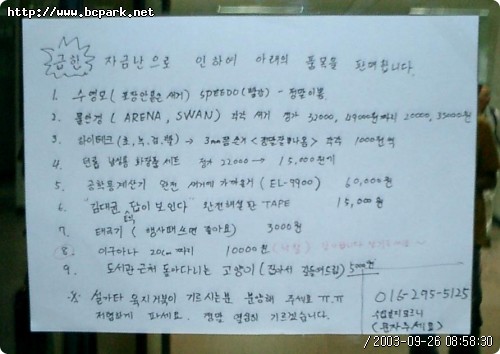 http://www.bcpark.net
급한 자금난으로 인하여 아래의 물품을 판매합니다.
1. 수영모 (포장안뜯은 새거) SPEEDO (합성) - 정말이쁨
2. 물안경 (ARENA, SWAN) 각각 새거 정가 32000, 49000짜리 20000, 35000원
3. 하이테크 (초, 녹, 검, 학) → 각각 1000원씩
4. 화장품 세트 정가 22000 → 15,000원에
5. 공학용계산기 완전 새거에 가까움 (EL-9900) 60,000원
6. "김대균 토익 답이 보인다" 완전해설판 TAPE 15,000원
7. 태극기 (행사때쓰면 좋아요) 3000원
8. 이구아나 20cm 짜리 10000원
9. 도서관 근처 돌아다니는 고양이 (잡아서 길들여드림) 5000원
※ 설마다 육지거북이 기르시는분 분양해 주세요 ㅠ.ㅠ
저렴하게 파세요. 정말 열심히 기르겠습니다.
016-295-5125
(문자주세요)
/2003-09-26 08:58:30